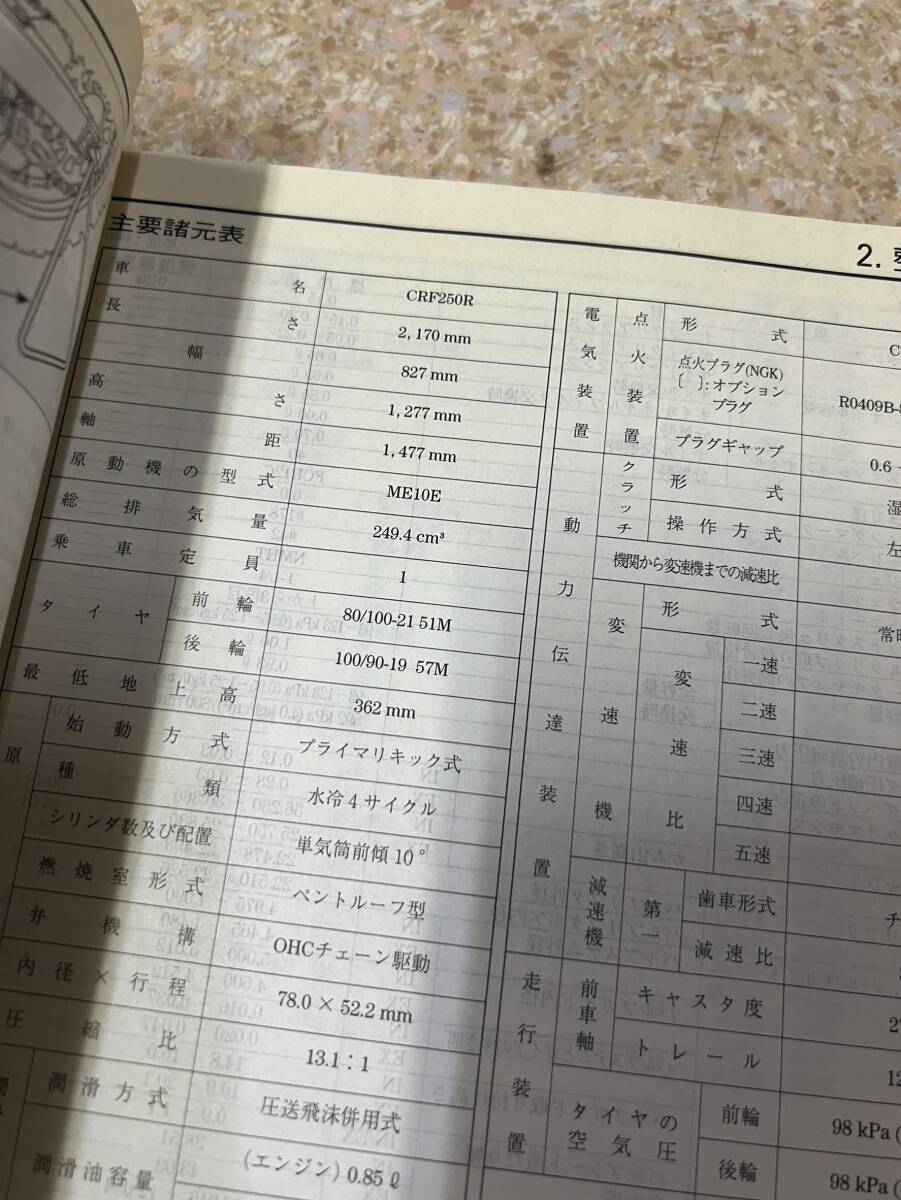 主要諸元表
2.
車名 CRF250R
長さ 2,170 mm
幅 827 mm
高さ 1,277 mm
軸距 1,477 mm
原動機の型式 ME10E
総排気量 249.4 cm³
乗車定員 1
タイヤ 前輪 80/100-21 51M
後輪 100/90-19 57M
最低地上高 362 mm
原
始動方式 プライマリキック式
種類 水冷4サイクル
シリンダ数及び配置 単気筒前傾10°
燃焼室形式 ペントルーフ型
弁機構 OHCチェーン駆動
内径×行程 78.0 × 52.2 mm
圧縮比 13.1:1
潤滑方式 圧送飛沫併用式
潤滑油容量 (エンジン) 0.85 ℓ
電気装置
点火装置
形式 C
点火プラグ(NGK)
〔 〕:オプション
プラグ
R0409B-
プラグギャップ 0.6 -
動力伝達装置
クラッチ
形式 湿
操作方式 左
機関から変速機までの減速比
変速機
形式 常時
変速比
一速
二速
三速
四速
五速
減速機
第一
歯車形式 チ
減速比
走行装置
前車軸
キャスタ度 2
トレール 12
タイヤの
空気圧
前輪 98 kPa (
後輪 98 kPa (